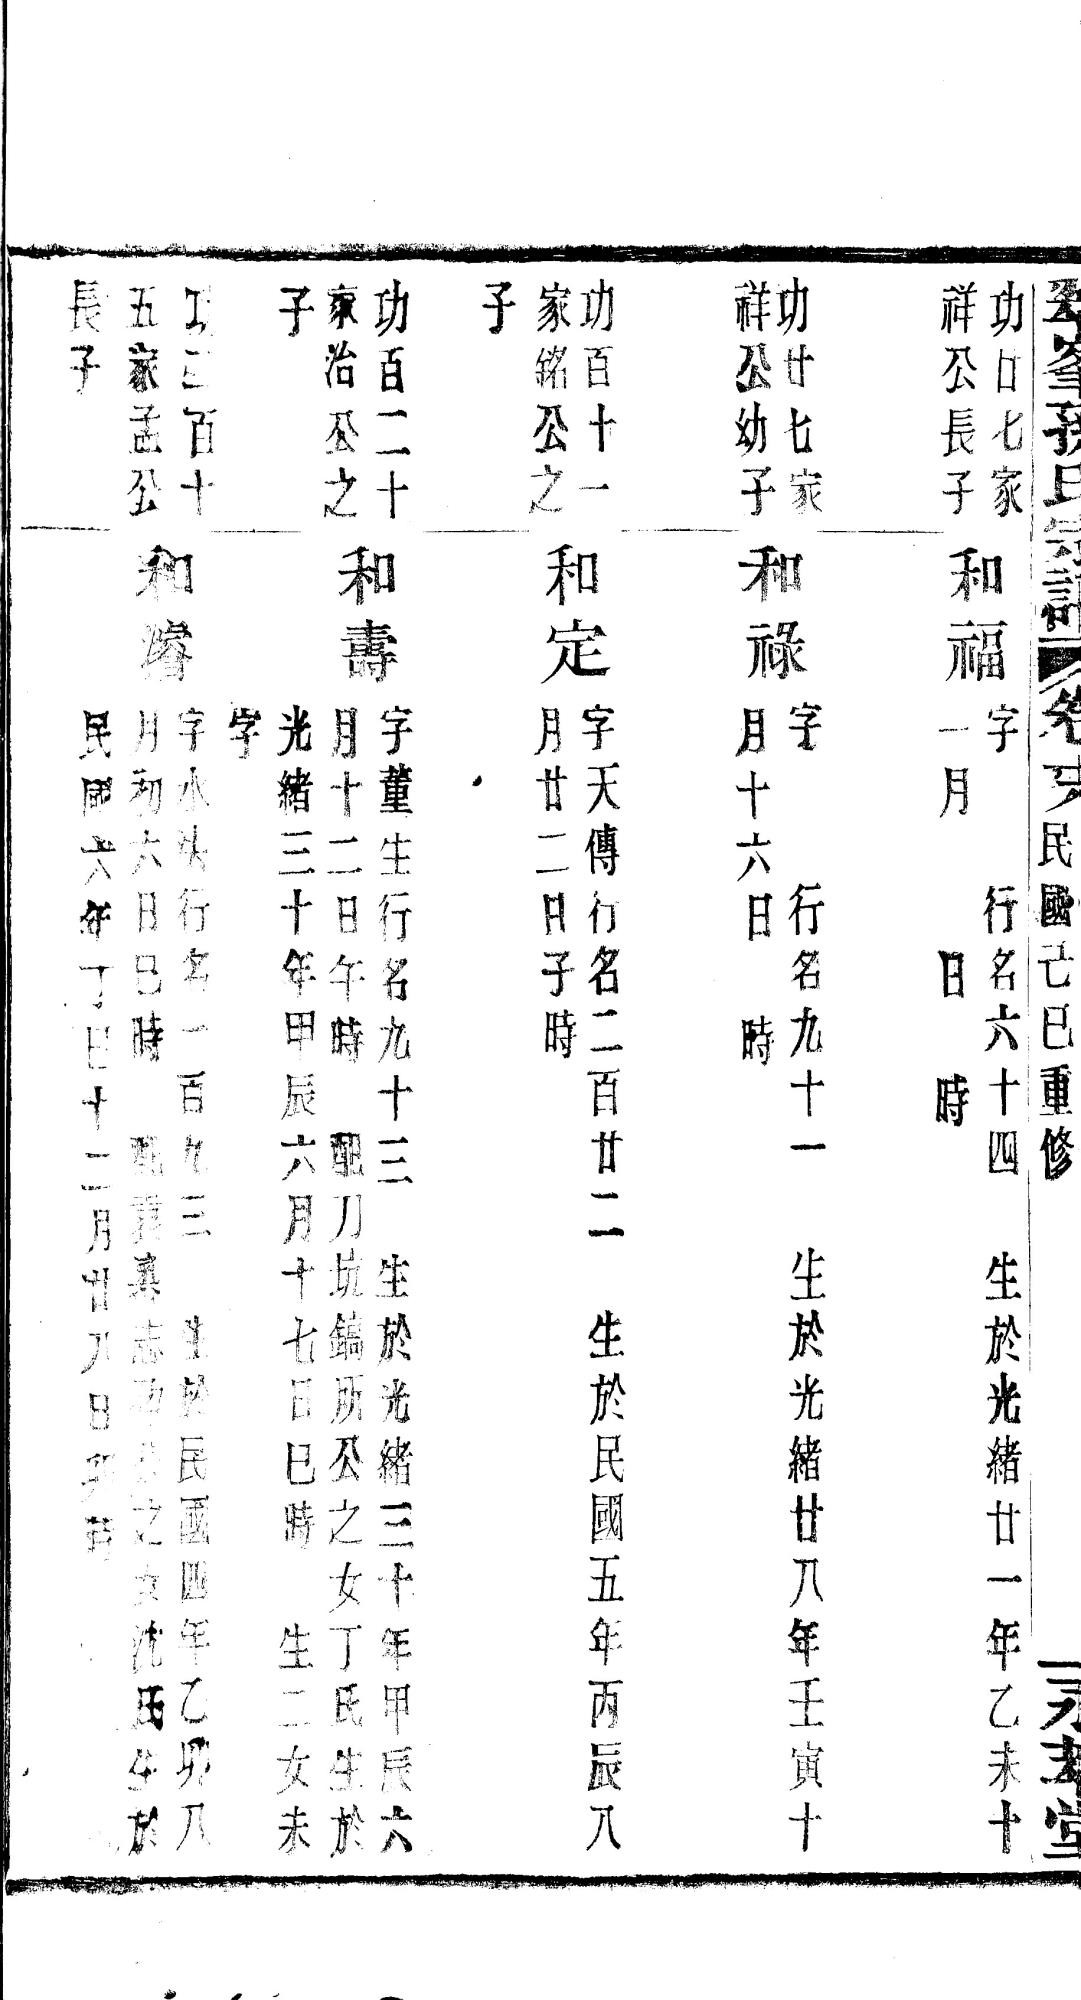 民國己巳重修
功廿七家
祥公長子
和福
字 行名六十四 生於光緒廿一年乙未十
一月 日 時
功廿七家
祥公幼子
和祿
字 行名九十一 生於光緒廿八年壬寅十
月十六日 時
功百十一
家銘公之
子
和定
字天傳行名二百廿二 生於民國五年丙辰八
月廿二日子時
功百二十
家治公之
子
和壽
字董生行名九十三 生於光緒三十年甲辰六
月十二日午時 配刀坑鎬所公之女丁氏生於
光緒三十年甲辰六月十七日巳時 生二女未
字
功三百十
五家孟公
長子
和濬
字水 行名一百九三 生於民國四年乙卯八
月初六日巳時 配 志功公之女沈氏生於
民國六年丁巳十二月廿八日 時